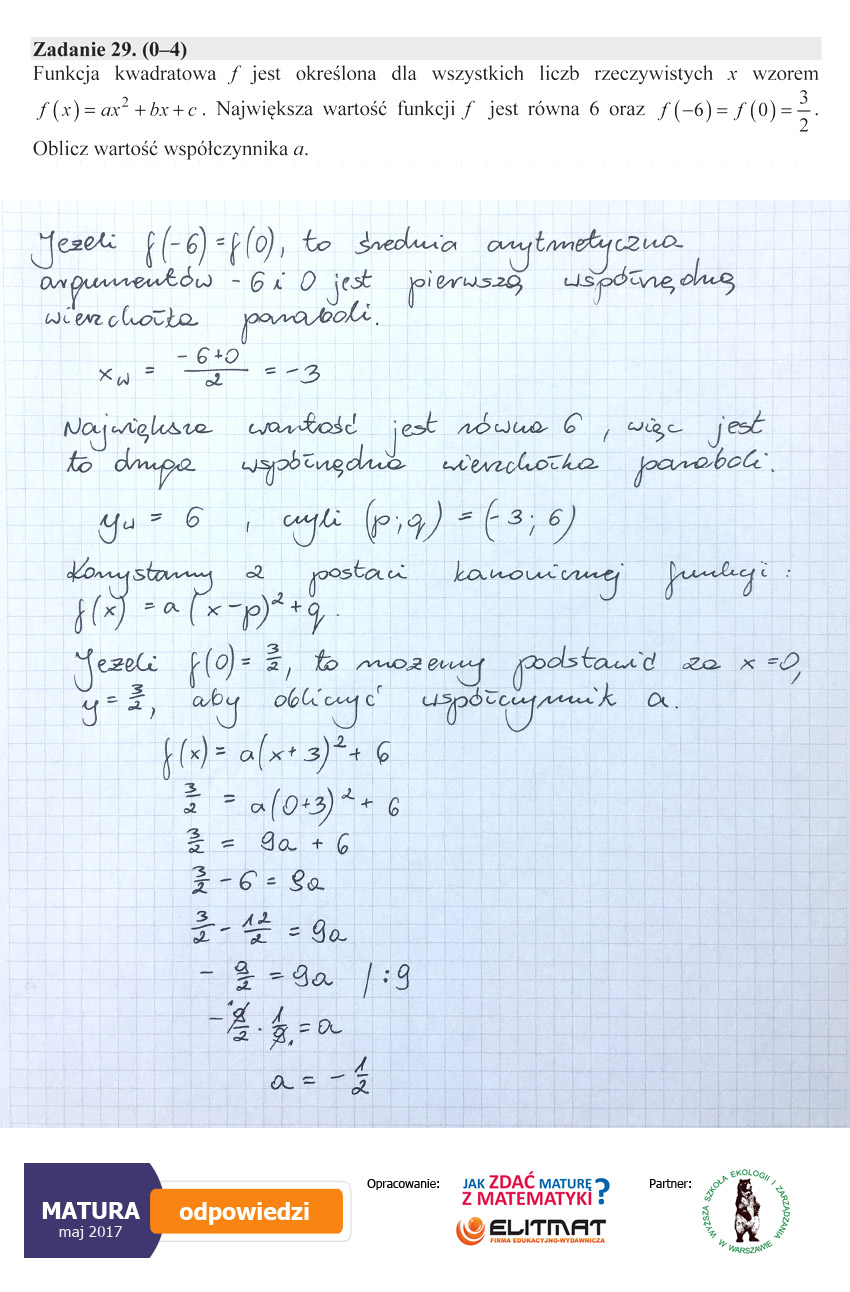 Zadanie 29. (0–4)
Funkcja kwadratowa f jest określona dla wszystkich liczb rzeczywistych x wzorem
f(x) = ax² + bx + c. Największa wartość funkcji f jest równa 6 oraz f(−6) = f(0) = 3/2.
Oblicz wartość współczynnika a.
Jeżeli f(-6) = f(0), to średnia arytmetyczna
argumentów -6 i 0 jest pierwszą współrzędną
wierzchołka paraboli.
x_W = (-6+0)/2 = -3
Największa wartość jest równa 6, więc jest
to druga współrzędna wierzchołka paraboli.
y_W = 6, czyli (p;q) = (-3;6)
Korzystamy z postaci kanonicznej funkcji:
f(x) = a(x-p)² + q.
Jeżeli f(0) = 3/2, to możemy podstawić za x = 0,
y = 3/2, aby obliczyć współczynnik a.
f(x) = a(x+3)² + 6
3/2 = a(0+3)² + 6
3/2 = 9a + 6
3/2 - 6 = 9a
3/2 - 12/2 = 9a
- 9/2 = 9a /:9
- 9/2 · 1/9 = a
a = - 1/2
MATURA
maj 2017
odpowiedzi
Opracowanie:
JAK ZDAĆ MATURĘ
Z MATEMATYKI?
ELITMAT
FIRMA EDUKACYJNO-WYDAWNICZA
Partner:
WYŻSZA SZKOŁA EKOLOGII I ZARZĄDZANIA
W WARSZAWIE